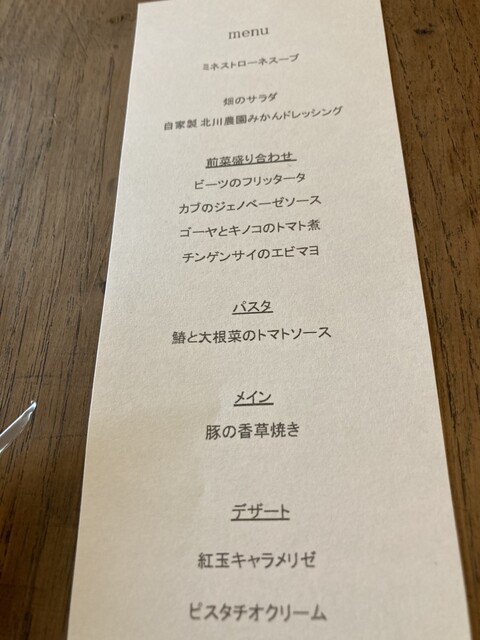 menu
ミネストローネスープ
畑のサラダ
自家製 北川農園みかんドレッシング
前菜盛り合わせ
ビーツのフリッタータ
カブのジェノベーゼソース
ゴーヤとキノコのトマト煮
チンゲンサイのエビマヨ
パスタ
鰆と大根菜のトマトソース
メイン
豚の香草焼き
デザート
紅玉キャラメリゼ
ピスタチオクリーム